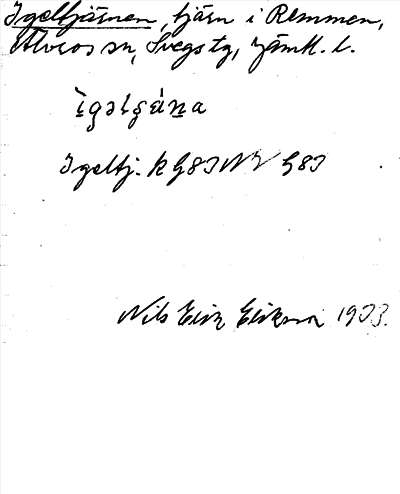 Igeltjärnen, tjärn i Remmen,
Älvros sn, Svegs tg, Jämtl. l.
ìgəlʂǽna
Igeltj. k G83 NV G83
Nils Eric Erikson 1933.